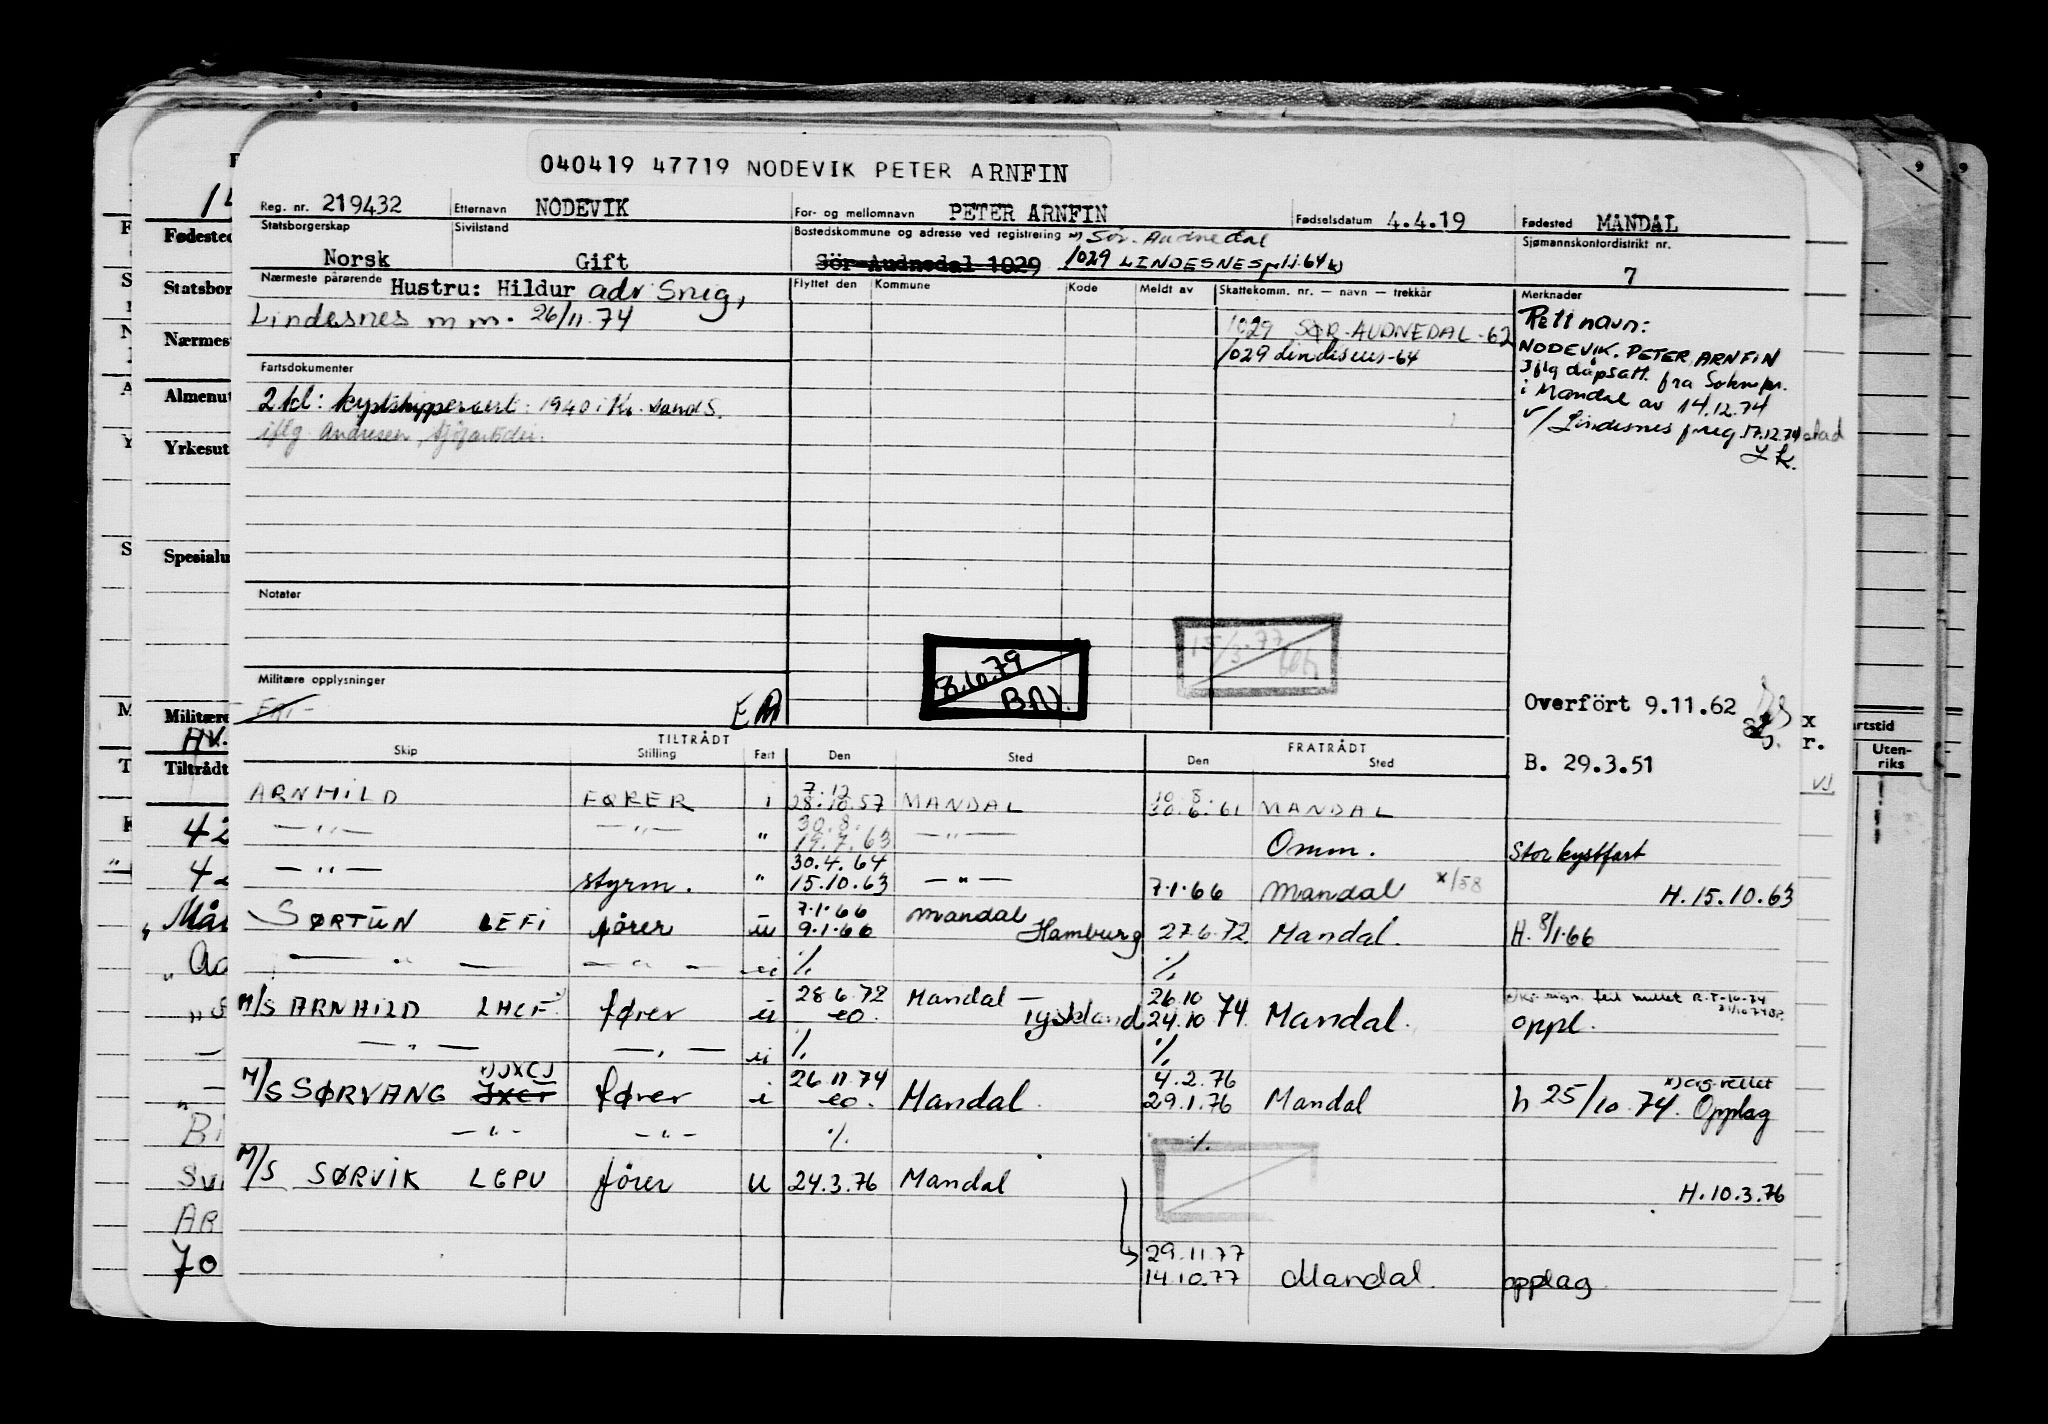 040419 47719 NODEVIK PETER ARNFIN
Reg. nr. 219432 Etternavn NODEVIK For- og mellomnavn PETER ARNFIN Fødselsdatum 4.4.19 Fødested MANDAL
Statsborgerskap Sivilstand Bostedskommune og adresse ved registrering Sør-Audnedal Sjømannskontordistrikt nr.
Norsk Gift Sör-Audnedal 1029 1029 LINDESNES 7
Nærmeste pårørende Hustru: Hildur adr Snig, Flyttet den Kommune Kode Meldt av Skattekomm. nr. — navn — trekkår Merknader
Lindesnes m m. 26/11.74 1029 SØR-AUDNEDAL-62 Rett navn:
1029 Lindesnes-64 NODEVIK. PETER ARNFIN
Fartsdokumenter iflg dåpsatt. fra Soknepr.
2 kl: kystskippersert: 1940 i Kr. sand S. i Mandal av 14.12.74
iflg. Andresen v/ Lindesnes freg. 17.12.74
Notater
8.10.79 BN. 15/3.77
Militære opplysninger
Overfört 9.11.62
Skip TILTRÅDT Stilling Fart Den Sted FRATRÅDT Den Sted
B. 29.3.51
ARNHILD FØRER i 7.12 28.10.57 MANDAL 10.8. 30.6.61 MANDAL
— " — — " — " 30.8. 19.7.63 — " — Omm. Stor kystfart
— " — styrm. " 30.4.64 15.10.63 — " — 7.1.66 Mandal x/58 H. 15.10.63
SØRTUN LEFI fører u 7.1.66 9.1.66 Mandal Hamburg 27.6.72 Mandal. H. 8/1.66
— " — — " — %. %.
M/S ARNHILD LHCF fører u 28.6.72 eo. Mandal — Tyskland 26.10 24.10 74 Mandal. oppl.
— " — — " — %. %.
M/S SØRVANG JXCJ fører i 26.11.74 eo. Mandal 4.2.76 29.1.76 Mandal h 25/10.74. Opplag
— " — — " — %. %.
M/S SØRVIK LGPU fører u 24.3.76 Mandal H. 10.3.76
29.11.77
14.10.77 Mandal. opplag
Fødested
Almenut
Yrkesut
Tiltrådt
Uten-
riks